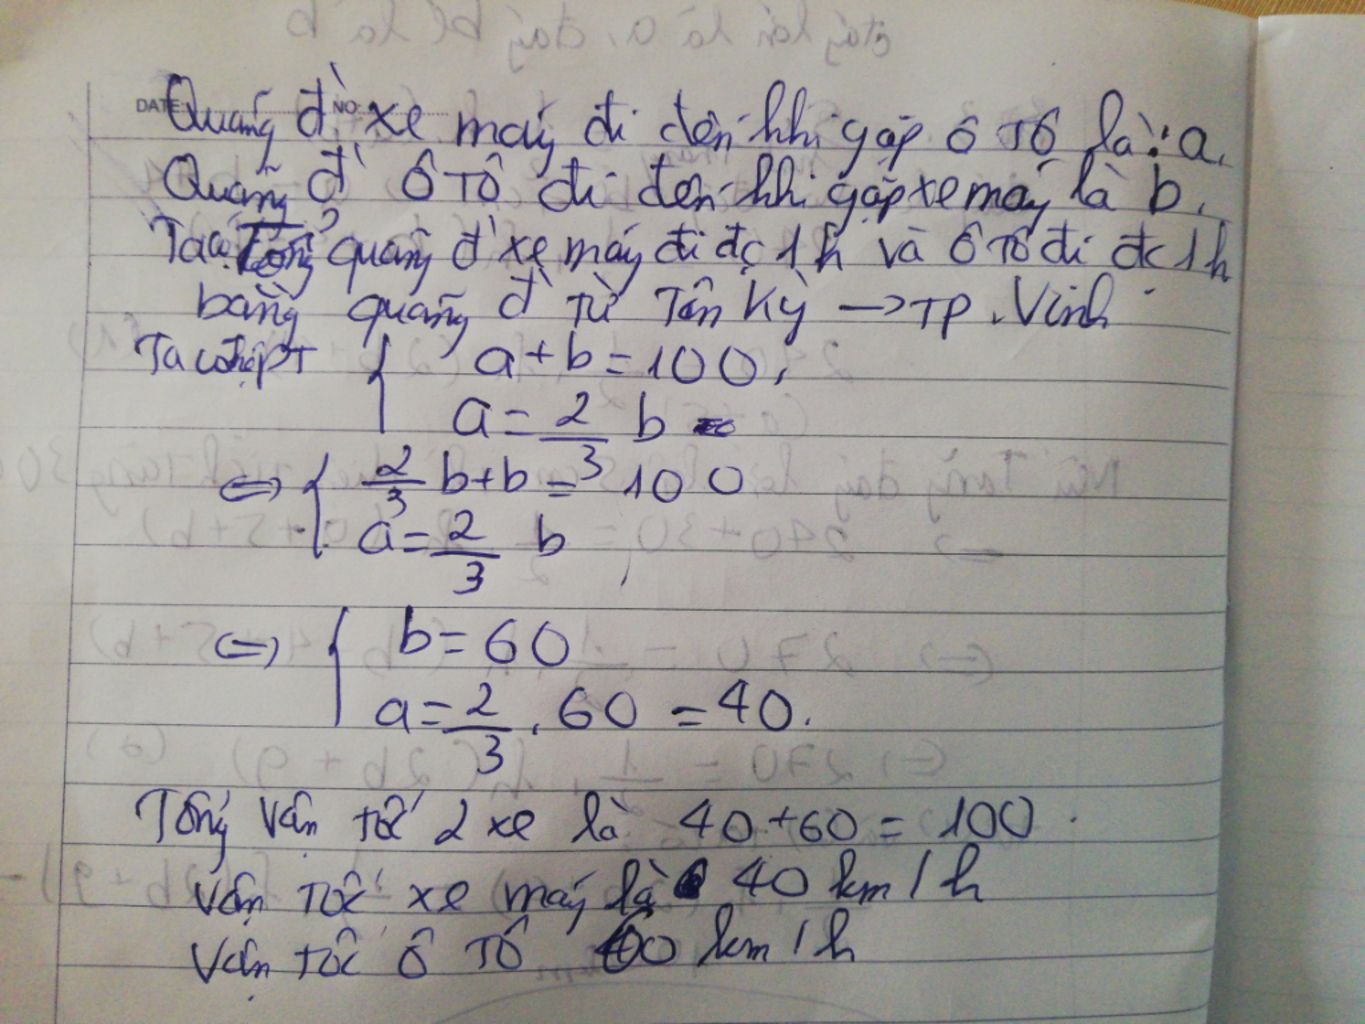 DATE: NO:
Quãng đ` xe máy đi đến khi gặp ô tô là: a.
Quãng đ` ô tô đi đến khi gặp xe máy là b.
Ta có Tổng quãng đ` xe máy đi đc 1h và ô tô đi đc 1h
bằng quãng đ` từ Tân Kỳ → TP. Vinh
Ta có hệ PT { a + b = 100,
a = 2/3 b
⇔ { 2/3 b + b = 100
a = 2/3 b
⇔ { b = 60
a = 2/3 . 60 = 40.
Tổng vận tốc 2 xe là 40 + 60 = 100.
vận tốc xe máy là 40 km/h
Vận tốc ô tô 60 km/h